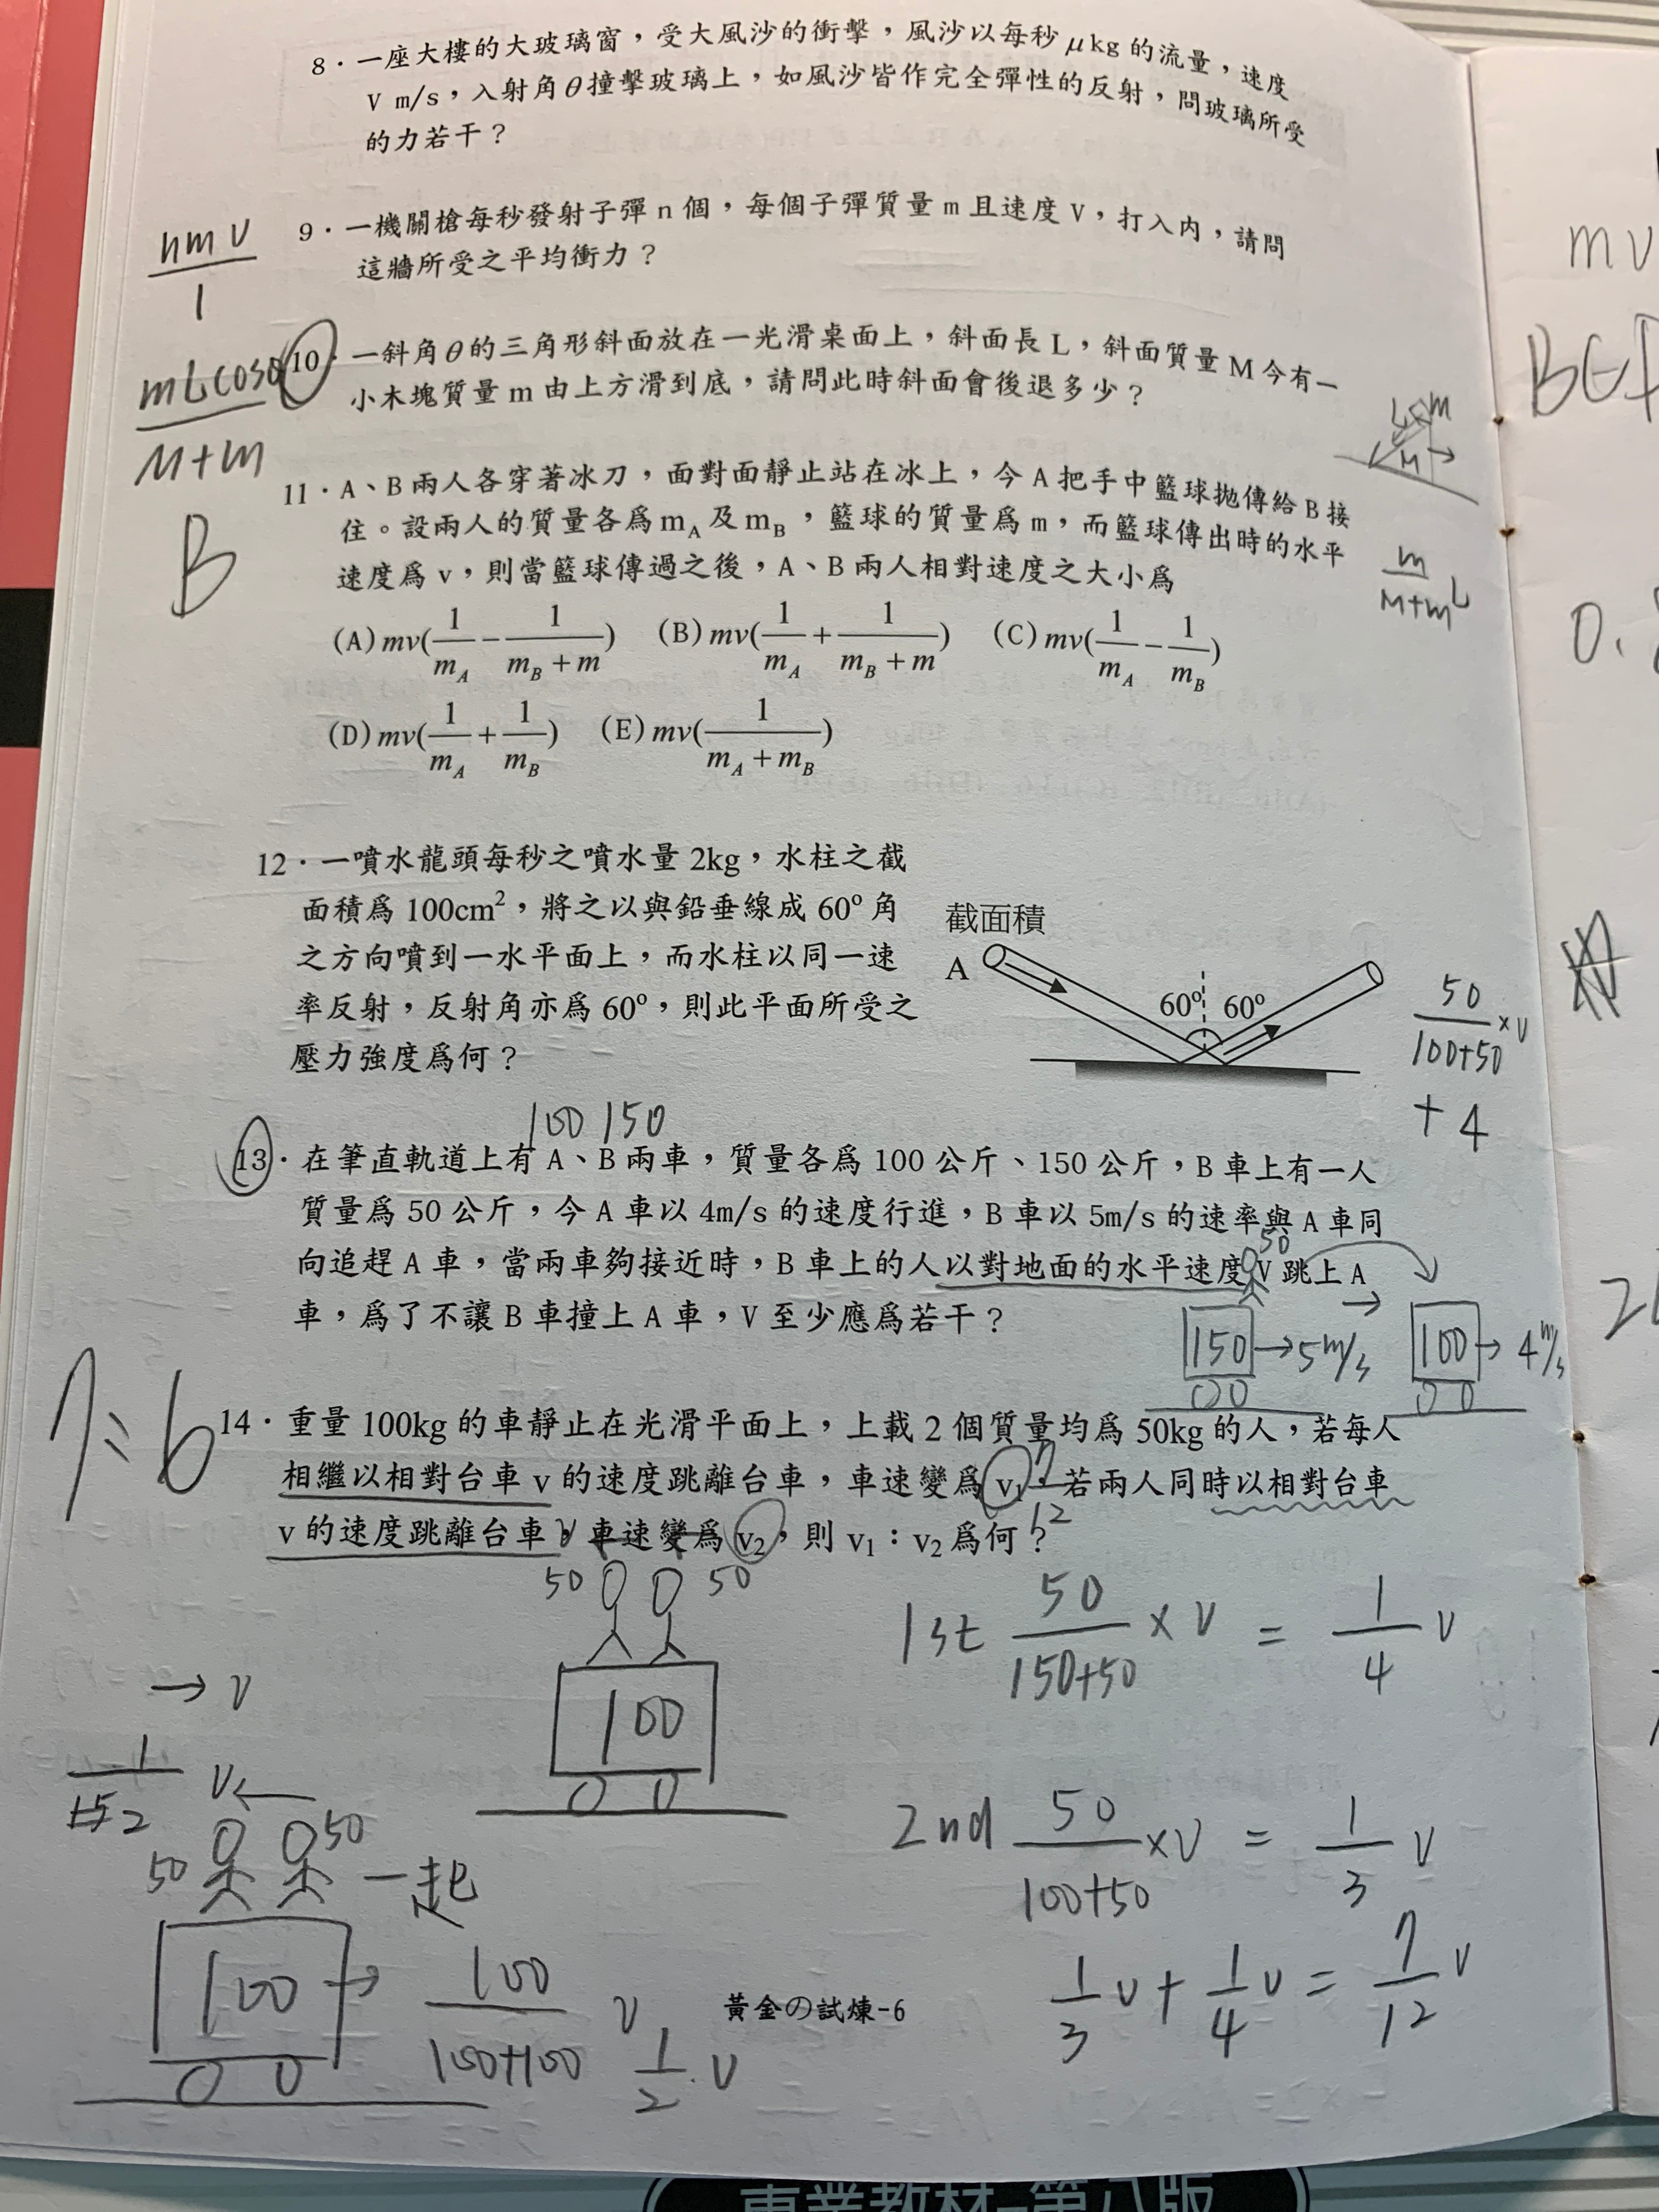 8．一座大樓的大玻璃窗，受大風沙的衝擊，風沙以每秒μkg的流量，速度
V m/s，入射角θ撞擊玻璃上，如風沙皆作完全彈性的反射，問玻璃所受
的力若干？
nmv
1
9．一機關槍每秒發射子彈n個，每個子彈質量m且速度V，打入內，請問
這牆所受之平均衝力？
mLcosθ
M+m
10．一斜角θ的三角形斜面放在一光滑桌面上，斜面長L，斜面質量M今有一
小木塊質量m由上方滑到底，請問此時斜面會後退多少？
L m
M
B
11．A、B兩人各穿著冰刀，面對面靜止站在冰上，今A把手中籃球拋傳給B接
住。設兩人的質量各爲mA及mB，籃球的質量爲m，而籃球傳出時的水平
速度爲v，則當籃球傳過之後，A、B兩人相對速度之大小爲
m
M+m L
(A) mv(1/mA − 1/(mB + m)) (B) mv(1/mA + 1/(mB + m)) (C) mv(1/mA − 1/mB)
(D) mv(1/mA + 1/mB) (E) mv(1/(mA + mB))
12．一噴水龍頭每秒之噴水量2kg，水柱之截
面積爲100cm²，將之以與鉛垂線成60º角
之方向噴到一水平面上，而水柱以同一速
率反射，反射角亦爲60º，則此平面所受之
壓力強度爲何？
截面積
A
60º 60º
50
100+50 ×v
+ 4
100 150
13．在筆直軌道上有A、B兩車，質量各爲100公斤、150公斤，B車上有一人
質量爲50公斤，今A車以4m/s的速度行進，B車以5m/s的速率與A車同
向追趕A車，當兩車夠接近時，B車上的人以對地面的水平速度V跳上A
車，爲了不讓B車撞上A車，V至少應爲若干？
50
150 → 5m/s
100 → 4m/s
7:6
14．重量100kg的車靜止在光滑平面上，上載2個質量均爲50kg的人，若每人
相繼以相對台車v的速度跳離台車，車速變爲v₁，若兩人同時以相對台車
v的速度跳離台車，車速變爲v₂，則v₁：v₂爲何？
7
12
50 50
100
1st 50/(150+50) × v = 1/4 v
2nd 50/(100+50) × v = 1/3 v
1/3 v + 1/4 v = 7/12 v
→ v
1
2
v ←
50 50 一起
100 → 100/(100+100) v
1/2 v
黃金の試煉-6
mv
BEF
0.
專業教材-第八版